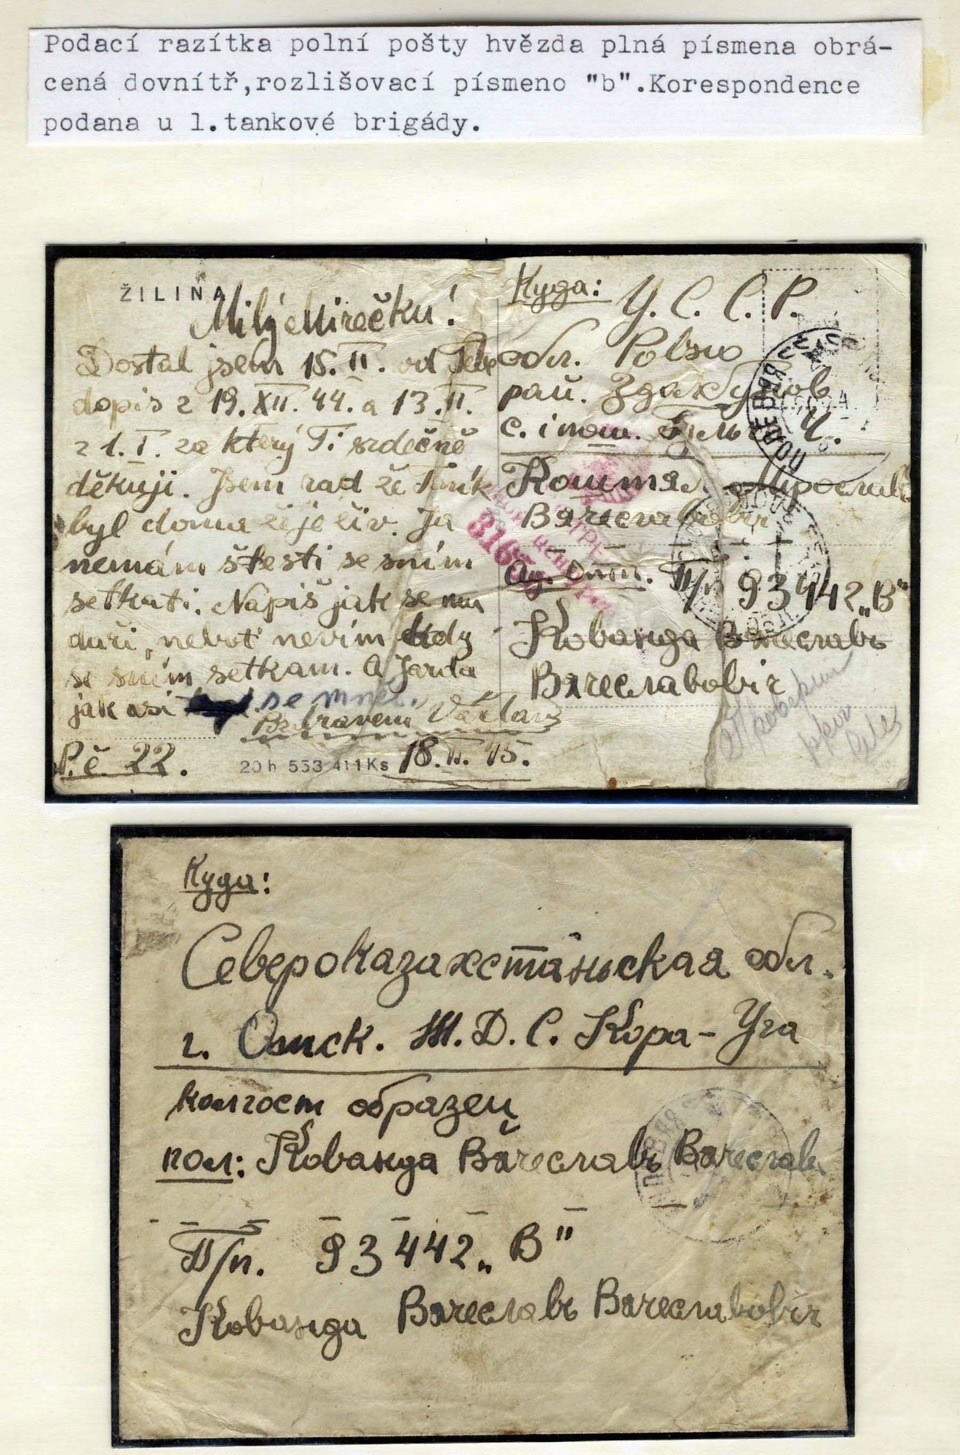 Podací razítka polní pošty hvězda plná písmena obrá-
cená dovnitř,rozlišovací písmeno "b".Korespondence
podana u 1.tankové brigády.
ŽILINA
Milý Mirečku!
Dostal jsem 15. II. od Tebe
dopis z 19. XII. 44. a 13. II.
z 1. I. za který Ti srdečně
děkuji. Jsem rad že
byl doma že je živ. Ja
nemám štesti se s ním
setkati. Napiš jak se mu
daři, neboť nevím kdy
se s ním setkam. A Jarda
jak asi se mnei.
Václav
P.č. 22.
20 h 553 411 Ks
18. II. 45.
Куда: У. С. С. Р.
обл.
рай.
с. i пот. Ч.
Коштял
Вячеславовiч
П/п 93442 „В"
Кованда Вячеславь
Вячеславовiч
3167
Куда:
Североказахстаньская обл.
г. Омск. Ж. Д. С. Кора - Уга
колгост образец
пол: Кованда Вячеславь Вячеслав
П/п. 93442 „В"
Кованда Вячеславь Вячеславовiч